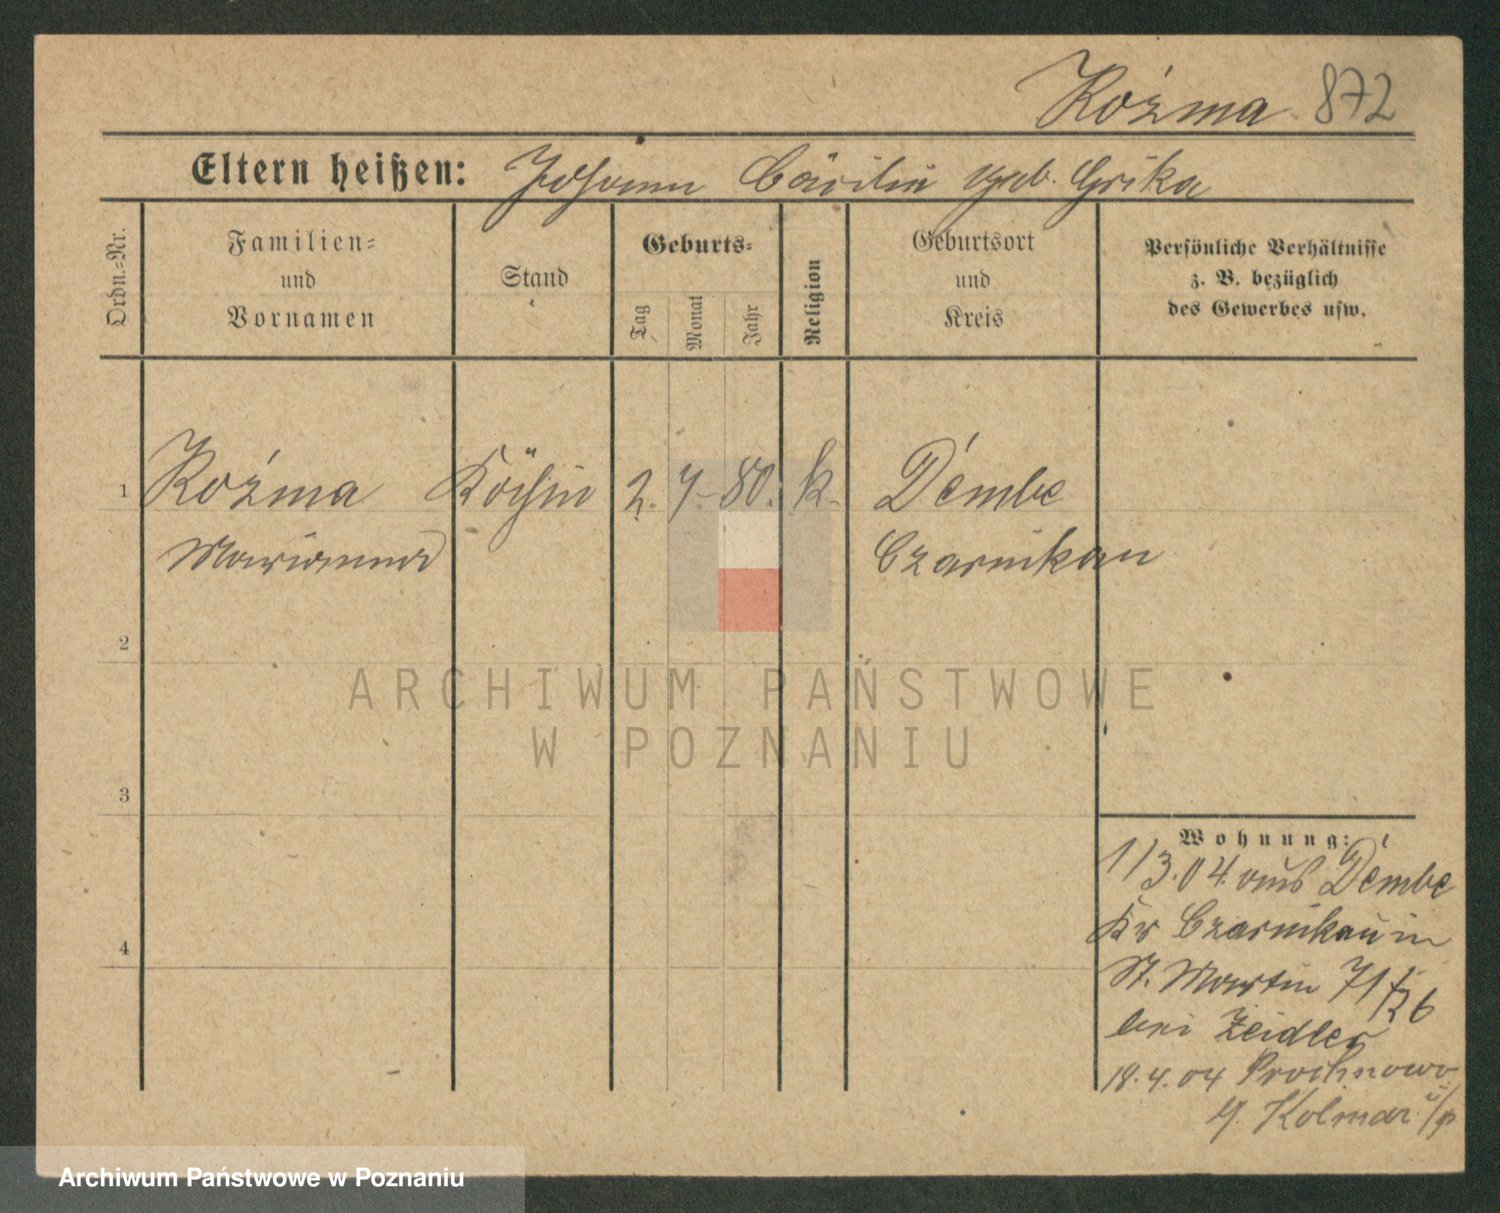 Roźma 872
Eltern heißen: Johann Cäcilia geb. Grika
Ordn.=Nr.
Familien=
und
Vornamen
Stand
Geburts=
Tag
Monat
Jahr
Religion
Geburtsort
und
Kreis
Persönliche Verhältnisse
z. B. bezüglich
des Gewerbes usw.
1 Roźma Köchin 2. 7. 80. k. Dembe
Marianna Czarnikau
2
3
4
Wohnung:
1/3.04. aus Dembe
Kr Czarnikau in
St. Martin 71
bei Zeidler
18.4.04 Prochnowo
Kolmar i/p
ARCHIWUM PAŃSTWOWE
W POZNANIU
Archiwum Państwowe w Poznaniu